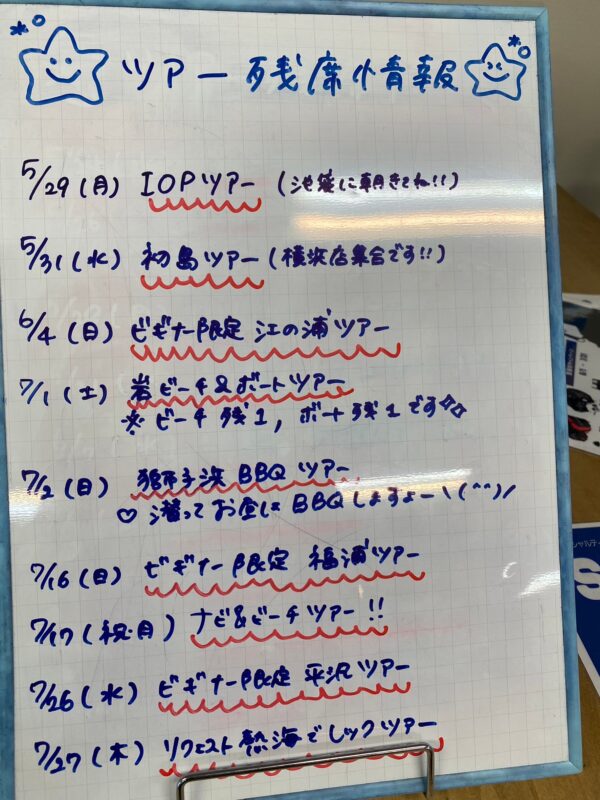 ツアー残席情報
5/29(月) IOPツアー (池袋に朝きてね!!)
5/31(水) 初島ツアー(横浜店集合です!!)
6/4(日) ビギナー限定 江の浦ツアー
7/1(土) 岩ビーチ&ボートツアー
※ビーチ残1, ボート残1です☆☆
7/2(日) 獅子浜BBQツアー
♡潜ってお昼はBBQしますよー\(^^)/
7/16(日) ビギナー限定 福浦ツアー
7/17(祝・月) ナビ&ビーチツアー!!
7/26(水) ビギナー限定 平沢ツアー
7/27(木) リクエスト熱海でレックツアー